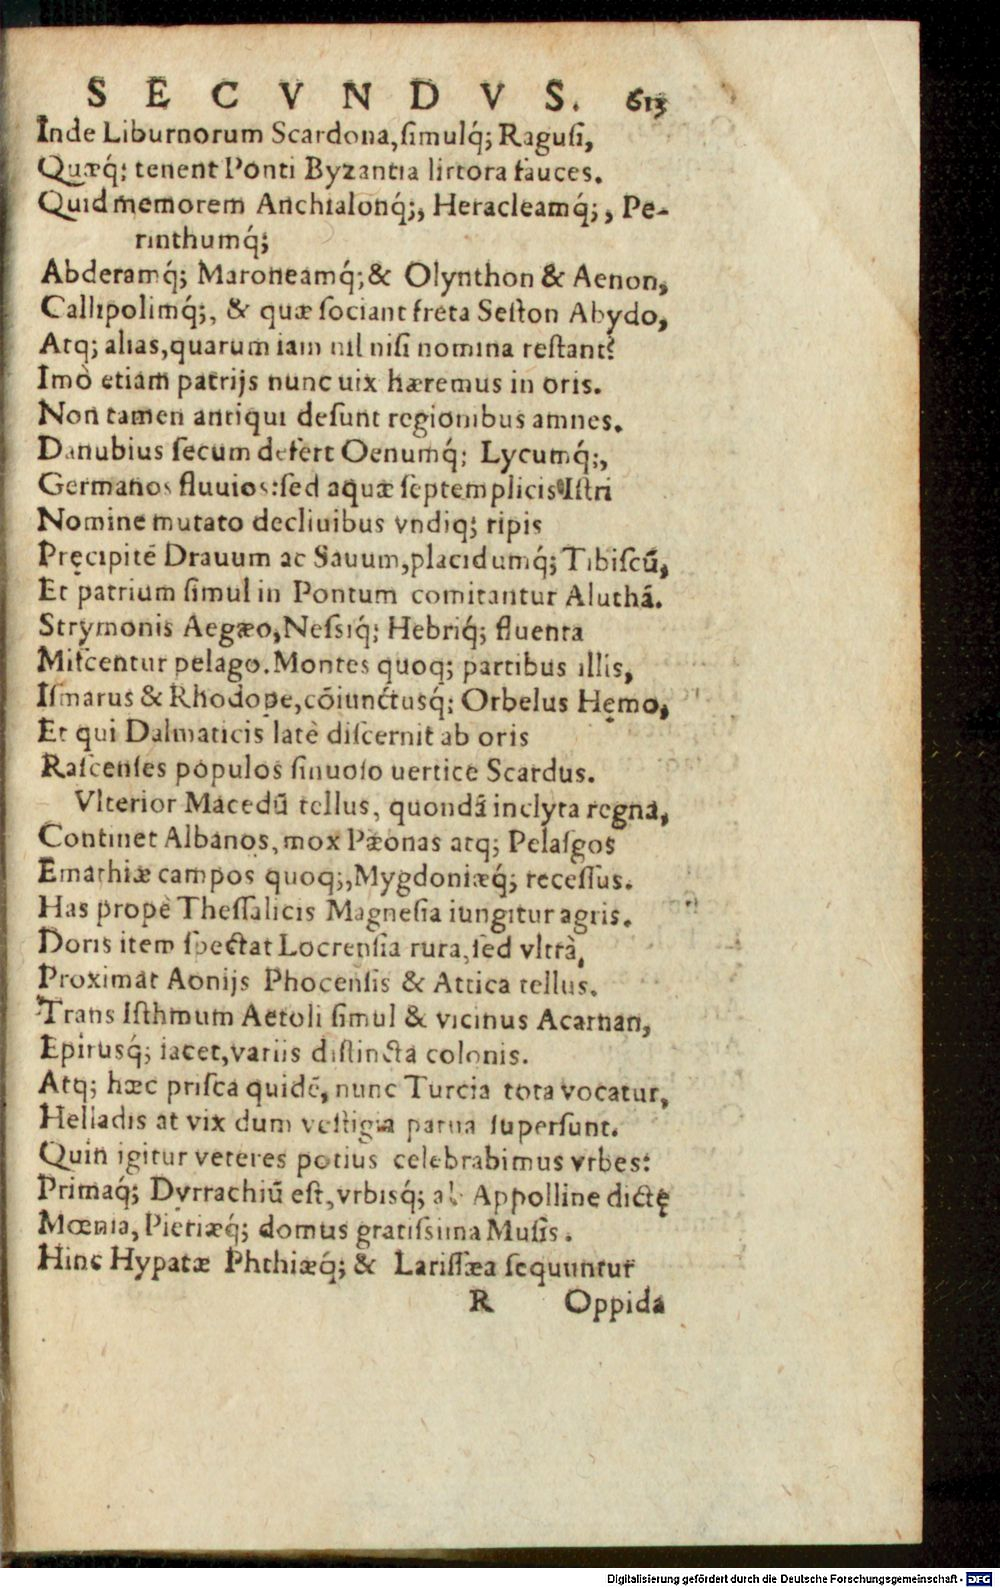 SECVNDVS. 613
Inde Liburnorum Scardona, ſimulq́; Raguſi,
Quæq́; tenent Ponti Byzantia littora fauces.
Quid memorem Anchialonq́;, Heracleamq́;, Pe-
rinthumq́;
Abderamq́; Maroneamq́; & Olynthon & Aenon,
Callipolimq́;, & quæ ſociant freta Seſton Abydo,
Atq; alias, quarum iam nil niſi nomina reſtant?
Imò etiam patrijs nunc uix hæremus in oris.
Non tamen antiqui deſunt regionibus amnes.
Danubius ſecum defert Oenumq́; Lycumq́;,
Germanos fluuios: ſed aquæ ſeptemplicis Iſtri
Nomine mutato decliuibus vndiq; ripis
Pręcipitē Drauum ac Sauum, placidumq́; Tibiſcū,
Et patrium ſimul in Pontum comitantur Aluthā.
Strymonis Aegæo, Neſsiq́; Hebriq́; fluenta
Miſcentur pelago. Montes quoq; partibus illis,
Iſmarus & Rhodope, cōiunctusq́; Orbelus Hęmo,
Et qui Dalmaticis latè diſcernit ab oris
Raſcenſes populos ſinuoſo uertice Scardus.
Vlterior Macedū tellus, quondā inclyta regna,
Continet Albanos, mox Pæonas atq; Pelaſgos
Emathiæ campos quoq;, Mygdoniæq́; receſſus.
Has propè Theſſalicis Magneſia iungitur agris.
Doris item ſpectat Locrenſia rura, ſed vltrà,
Proximat Aonijs Phocenſis & Attica tellus.
Trans Iſthmum Aetoli ſimul & vicinus Acarnan,
Epirusq́; iacet, variis diſtincta colonis.
Atq; hæc priſca quidē, nunc Turcia tota vocatur,
Helladis at vix dum veſtigia parua ſuperſunt.
Quin igitur veteres potius celebrabimus vrbes?
Primaq́; Dyrrachiū eſt, vrbisq́; ab Appolline dictę
Mœnia, Pieriæq́; domus gratiſsima Muſis.
Hinc Hypatæ Phthiæq́; & Lariſſæa ſequuntur
R Oppida
Digitalisierung gefördert durch die Deutsche Forschungsgemeinschaft - DFG